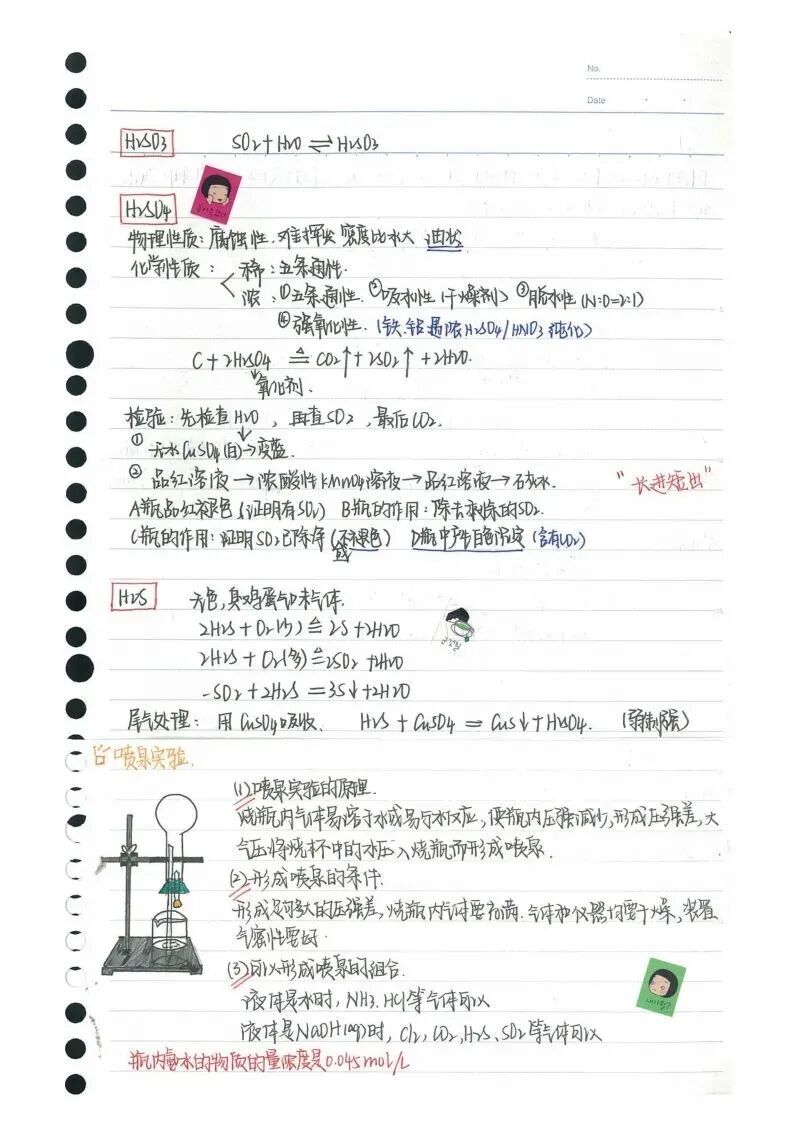 No.
Date
H₂SO₃ SO₂+H₂O⇌H₂SO₃
H₂SO₄
物理性质:腐蚀性.难挥发 密度比水大 油状
化学性质: 稀:五条通性.
浓:①五条通性.②吸水性(干燥剂)③脱水性(H:O=2:1)
④强氧化性.(铁.铝遇浓H₂SO₄/HNO₃钝化)
C+2H₂SO₄ ≜ CO₂↑+2SO₂↑+2H₂O.
氧化剂.
检验:先检查H₂O,再查SO₂,最后CO₂.
①无水CuSO₄(白)→变蓝.
②品红溶液→浓酸性KMnO₄溶液→品红溶液→石灰水. "长进短出"
A瓶品红褪色(证明有SO₂) B瓶的作用:除去剩余的SO₂.
C瓶的作用:证明SO₂已除净(不褪色) D瓶中产生白色沉淀(含有CO₂)
H₂S 无色,臭鸡蛋气味气体.
2H₂S+O₂(少)≜2S+2H₂O
2H₂S+O₂(多)≜2SO₂+2H₂O
SO₂+2H₂S=3S↓+2H₂O
尾气处理:用CuSO₄吸收. H₂S+CuSO₄=CuS↓+H₂SO₄. (弱制强)
喷泉实验.
(1)喷泉实验的原理.
烧瓶内气体易溶于水或易与水反应,使瓶内压强减少,形成压强差,大
气压将烧杯中的水压入烧瓶而形成喷泉.
(2)形成喷泉的条件.
形成足够大的压强差,烧瓶内气体要充满.气体和仪器均要干燥,装置
气密性要好.
(3)可以形成喷泉的组合.
液体是水时,NH₃.HCl等气体可以
液体是NaOH(aq)时,Cl₂,CO₂,H₂S,SO₂等气体可以
瓶内氨水的物质的量浓度是0.045mol/L